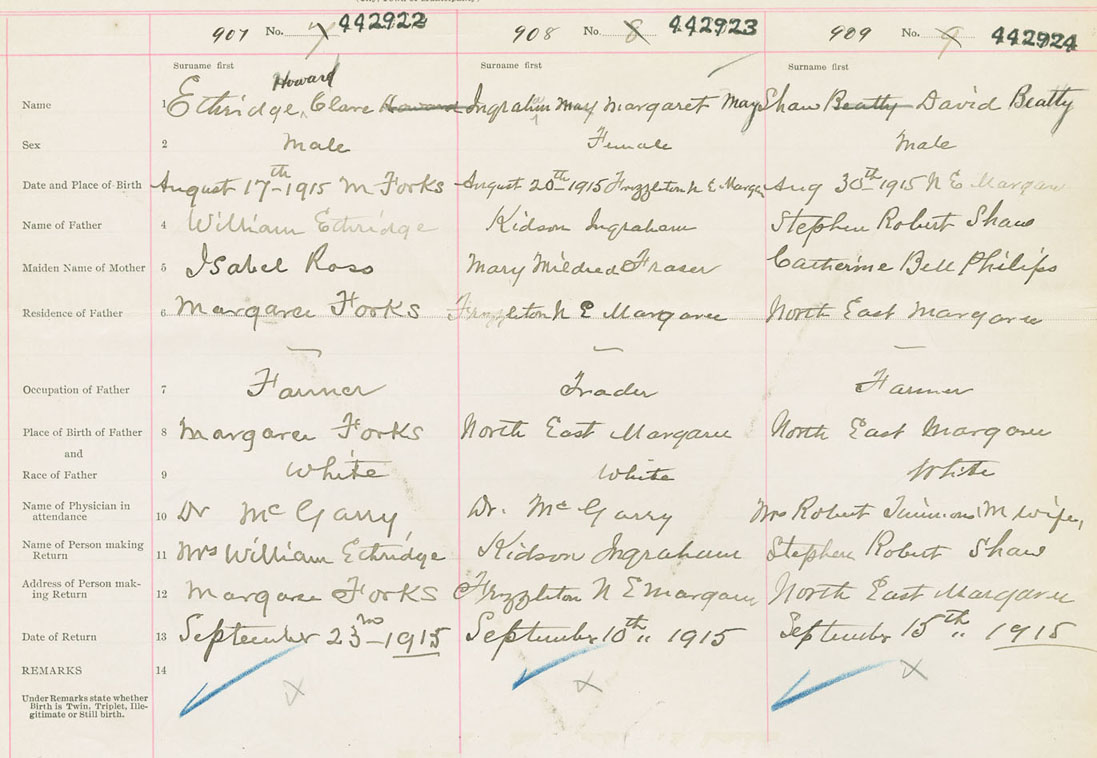 907 No. 7 442922 908 No. 8 442923 909 No. 9 442924
Surname first Surname first Surname first
Howard
Name 1 Ethridge, Clare Howard Ingraham May Margaret May Shaw Beatty David Beatty
Sex 2 Male Female Male
Date and Place of Birth August 17th-1915 M Forks August 20th 1915 Frizzleton N E Margaree Aug 30th 1915 N E Margaree
Name of Father 4 William Ethridge Kidson Ingraham Stephen Robert Shaw
Maiden Name of Mother 5 Isabel Ross Mary Mildred Fraser Catherine Bell Philips
Residence of Father 6 Margaree Forks Frizzleton N E Margaree North East Margaree
Occupation of Father 7 Farmer Trader Farmer
Place of Birth of Father 8 Margaree Forks North East Margaree North East Margaree
and
Race of Father 9 White White White
Name of Physician in
attendance 10 Dr McGarry Dr. McGarry Mrs Robert M wife,
Name of Person making
Return 11 Mrs William Ethridge Kidson Ingraham Stephen Robert Shaw
Address of Person mak-
ing Return 12 Margaree Forks Frizzleton N E Margaree North East Margaree
Date of Return 13 September 23rd-1915 September 10th 1915 September 15th 1915
REMARKS 14
Under Remarks state whether
Birth is Twin, Triplet, Ille-
gitimate or Still birth.